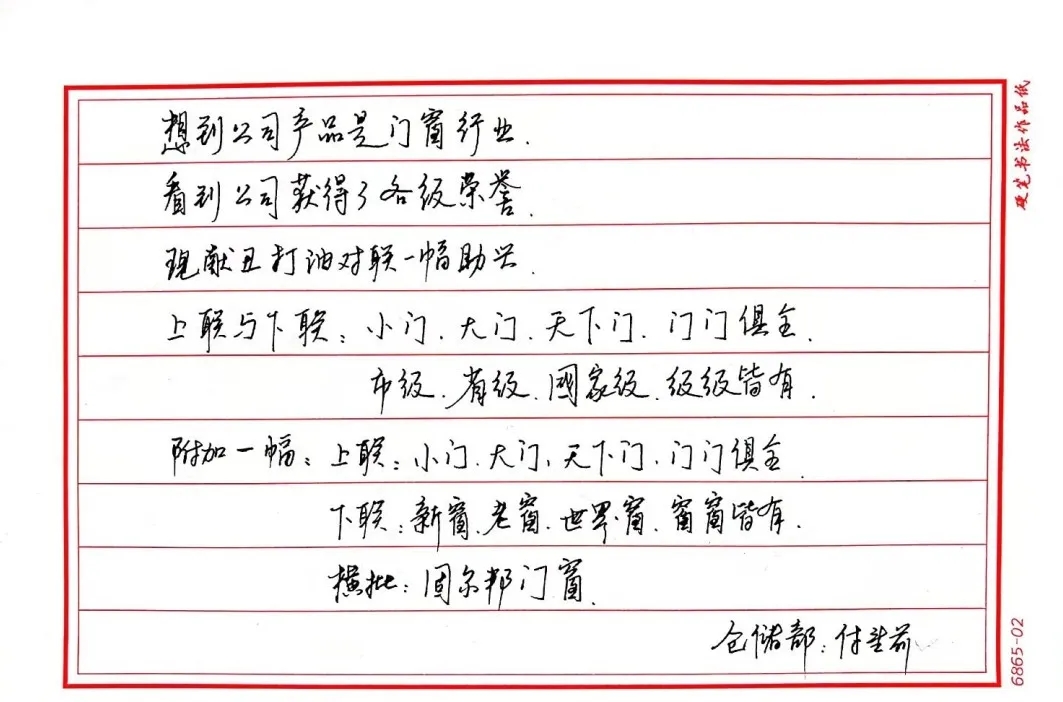 想到公司产品是门窗行业.
看到公司获得了各级荣誉.
现献丑打油对联一幅助兴.
上联与下联：小门、大门、天下门、门门俱全.
市级、省级、國家级、级级皆有.
附加一幅：上联：小门、大门、天下门、门门俱全.
下联：新窗、老窗、世界窗、窗窗皆有.
横批：固尔邦门窗.
仓储部：付
硬笔书法作品纸
6865-02